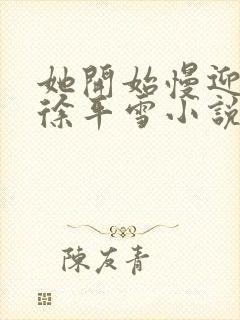 她開始慢迎
徐平雪小說
陳友青